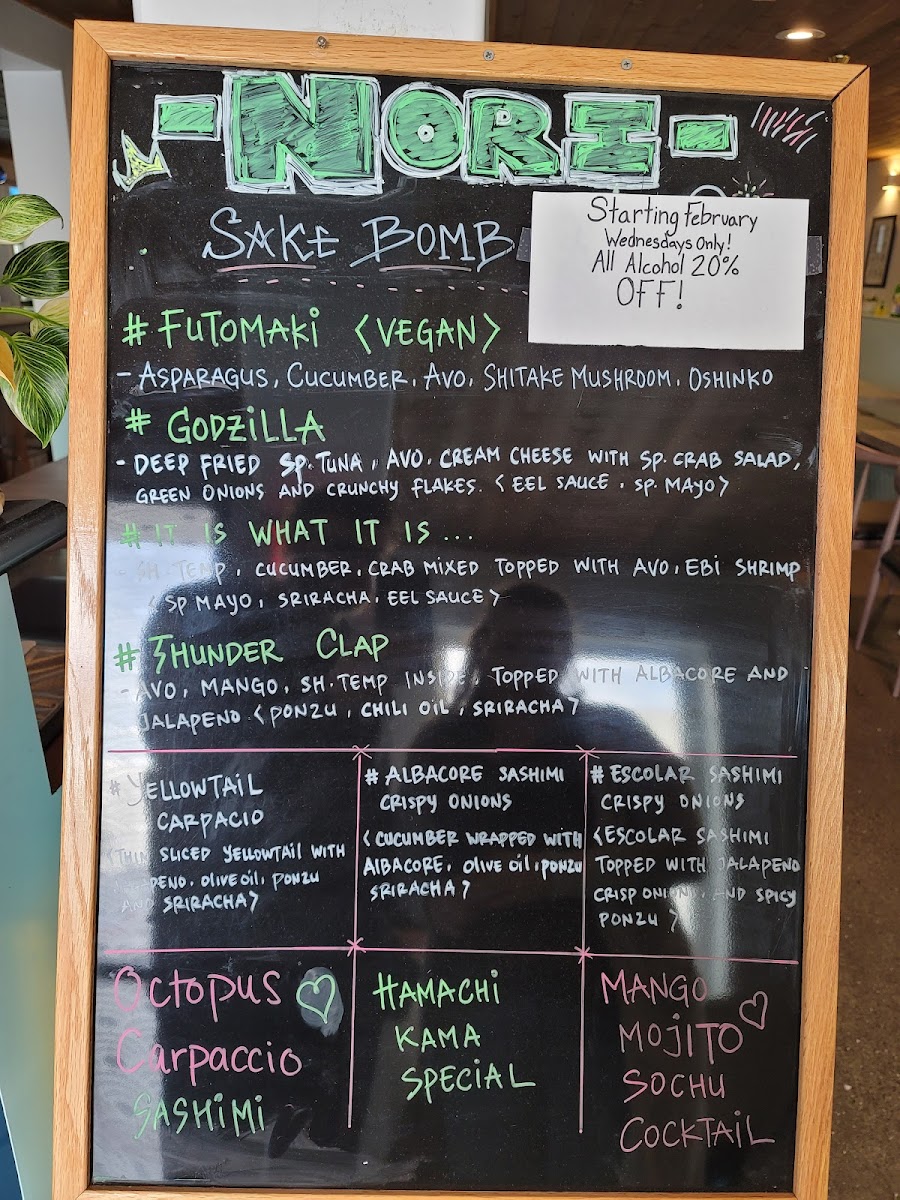 -NORI-
SAKE BOMB
Starting February
Wednesdays Only!
All Alcohol 20%
OFF!
# FUTOMAKI <VEGAN>
- ASPARAGUS, CUCUMBER, AVO, SHITAKE MUSHROOM, OSHINKO
# GODZILLA
- DEEP FRIED SP. TUNA, AVO. CREAM CHEESE WITH SP. CRAB SALAD,
GREEN ONIONS AND CRUNCHY FLAKES. < EEL SAUCE, SP. MAYO>
# IT IS WHAT IT IS ...
- SH. TEMP, CUCUMBER, CRAB MIXED TOPPED WITH AVO, EBI SHRIMP
< SP MAYO, SRIRACHA, EEL SAUCE>
# THUNDER CLAP
- AVO, MANGO, SH. TEMP INSIDE, TOPPED WITH ALBACORE AND
JALAPENO < PONZU, CHILI OIL, SRIRACHA>
# YELLOWTAIL
CARPACIO
<THIN SLICED YELLOWTAIL WITH
JALAPENO, OLIVE OIL, PONZU
AND SRIRACHA>
# ALBACORE SASHIMI
CRISPY ONIONS
<CUCUMBER WRAPPED WITH
ALBACORE, OLIVE OIL, PONZU
SRIRACHA>
# ESCOLAR SASHIMI
CRISPY ONIONS
<ESCOLAR SASHIMI
TOPPED WITH JALAPENO
CRISP ONIONS, AND SPICY
PONZU>
Octopus
Carpaccio
SASHIMI
HAMACHI
KAMA
SPECIAL
MANGO
MOJITO
SOCHU
COCKTAIL